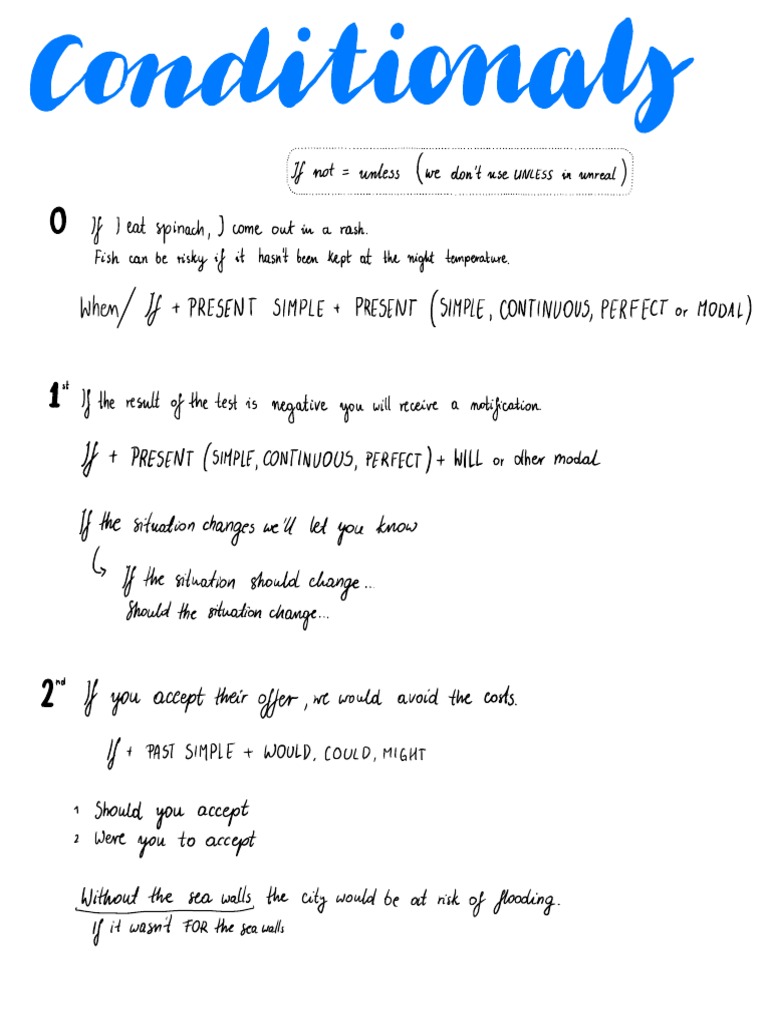 Conditionals
If not = unless (we don't use UNLESS in unreal)
0 If I eat spinach, I come out in a rash.
Fish can be risky if it hasn't been kept at the right temperature.
When/ If + PRESENT SIMPLE + PRESENT (SIMPLE, CONTINUOUS, PERFECT or MODAL)
1st If the result of the test is negative you will receive a notification.
If + PRESENT (SIMPLE, CONTINUOUS, PERFECT) + WILL or other modal
If the situation changes we'll let you know
↳ If the situation should change...
Should the situation change...
2nd If you accept their offer, we would avoid the costs.
If + PAST SIMPLE + WOULD, COULD, MIGHT
1 Should you accept
2 Were you to accept
Without the sea walls the city would be at risk of flooding.
If it wasn't FOR the sea walls